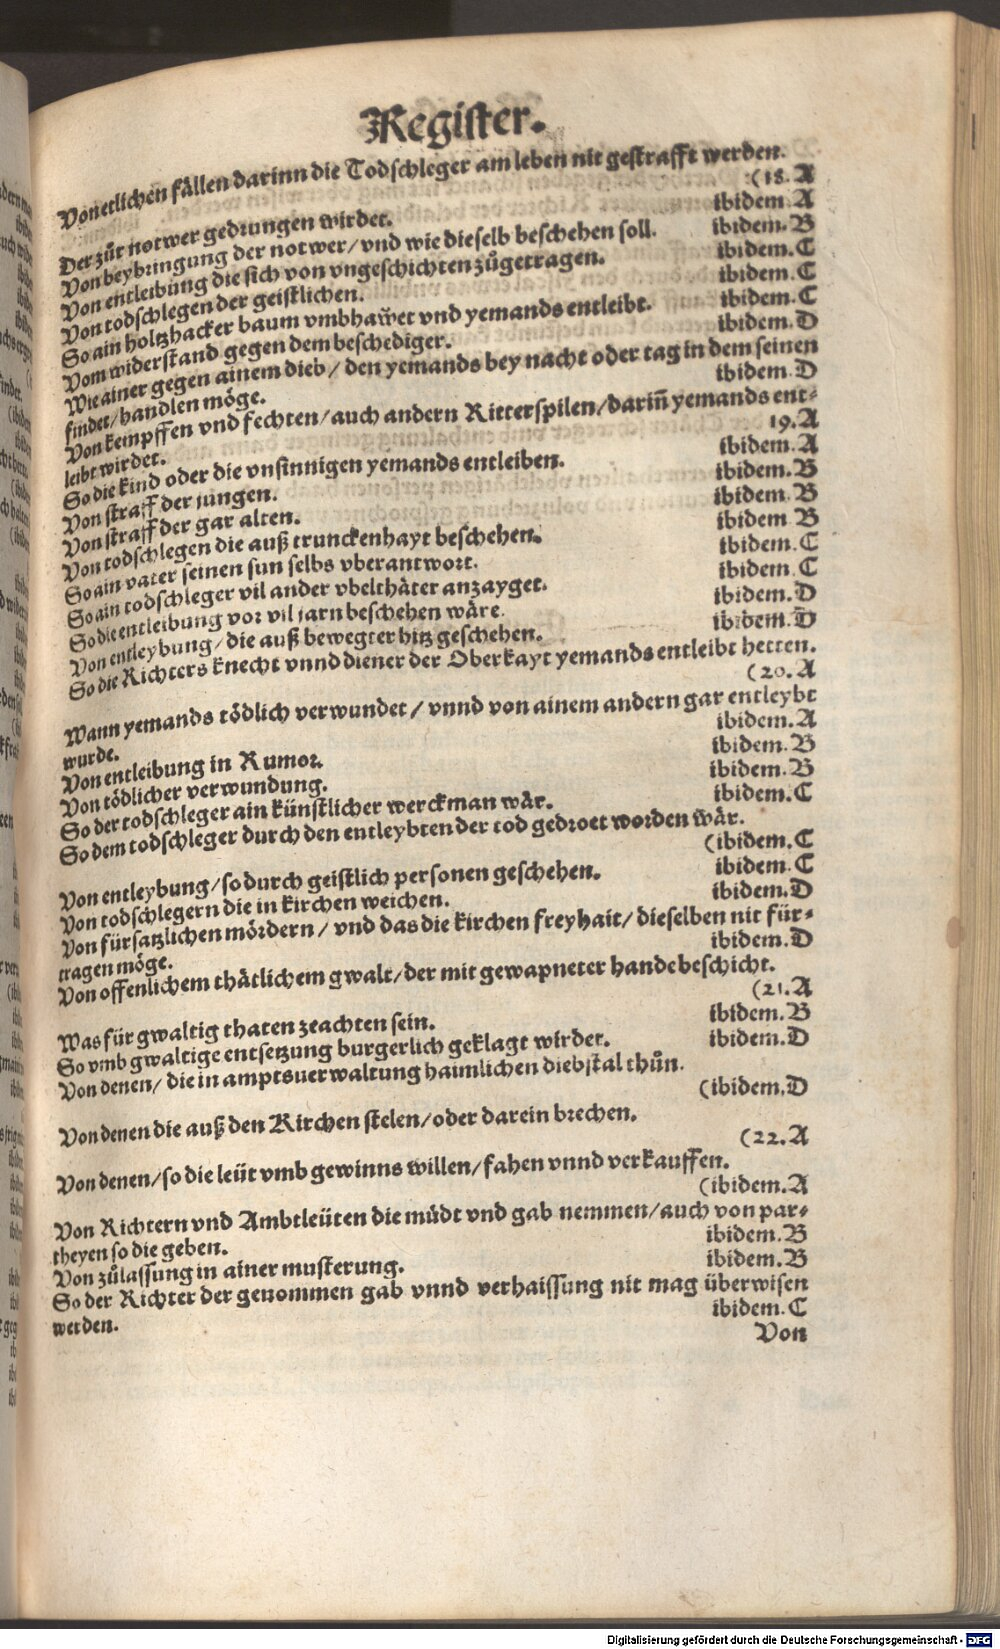 Register.
Von etlichen fällen darinn die Todschleger am leben nit gestrafft werden.
(18. A
Der zůr notwer gedrungen wirdet. ibidem. A
Von beybringung der notwer/ vnd wie dieselb beschehen soll. ibidem. B
Von entleibung die sich von vngeschichten zůgetragen. ibidem. C
Von todschlegen der geistlichen. ibidem. C
So ain holtzhacker baum vmbhawet vnd yemands entleibt. ibidem. C
Vom widerstand gegen dem beschediger. ibidem. D
Wie ainer gegen ainem dieb/ den yemands bey nacht oder tag in dem seinen
findet/ handlen möge. ibidem. D
Von kempffen vnd fechten/ auch andern Ritterspilen/ dariñ yemands ent-
leibt wirdet. 19. A
So die kind oder die vnsinnigen yemands entleiben. ibidem. A
Von straff der jungen. ibidem. B
Von straff der gar alten. ibidem. B
Von todschlegen die auß trunckenhayt beschehen. ibidem. B
So ain vater seinen sun selbs vberantwort. ibidem. C
So ain todschleger vil ander vbelthäter anzayget. ibidem. C
So die entleibung vor vil jarn beschehen wäre. ibidem. D
Von entleybung/ die auß bewegter hitz geschehen. ibidem. D
So die Richters knecht vnnd diener der Oberkayt yemands entleibt hetten.
(20. A
Wann yemands tödlich verwundet/ vnnd von ainem andern gar entleybt
wurde. ibidem. A
Von entleibung in Rumor. ibidem. B
Von tödlicher verwundung. ibidem. B
So der todschleger ain künstlicher werckman wär. ibidem. C
So dem todschleger durch den entleybten der tod gedroet worden wär.
(ibidem. C
Von entleybung/ so durch geistlich personen geschehen. ibidem. C
Von todschlegern die in kirchen weichen. ibidem. D
Von fürsatzlichen mördern/ vnd das die kirchen freyhait/ dieselben nit für-
tragen möge. ibidem. D
Von offenlichem thätlichem gwalt/ der mit gewapneter hande beschicht.
(21. A
Was für gwaltig thaten zeachten sein. ibidem. B
So vmb gwaltige entsetzung burgerlich geklagt wirdet. ibidem. D
Von denen/ die in amptsuerwaltung haimlichen diebstal thůn.
(ibidem. D
Von denen die auß den Kirchen stelen/ oder darein brechen.
(22. A
Von denen/ so die leüt vmb gewinns willen/ fahen vnnd verkauffen.
(ibidem. A
Von Richtern vnd Ambtleüten die müdt vnd gab nemmen/ auch von par-
theyen so die geben. ibidem. B
Von zůlassung in ainer musterung. ibidem. B
So der Richter der genommen gab vnnd verhaissung nit mag überwisen
werden. ibidem. C
Von
Digitalisierung gefördert durch die Deutsche Forschungsgemeinschaft - DFG